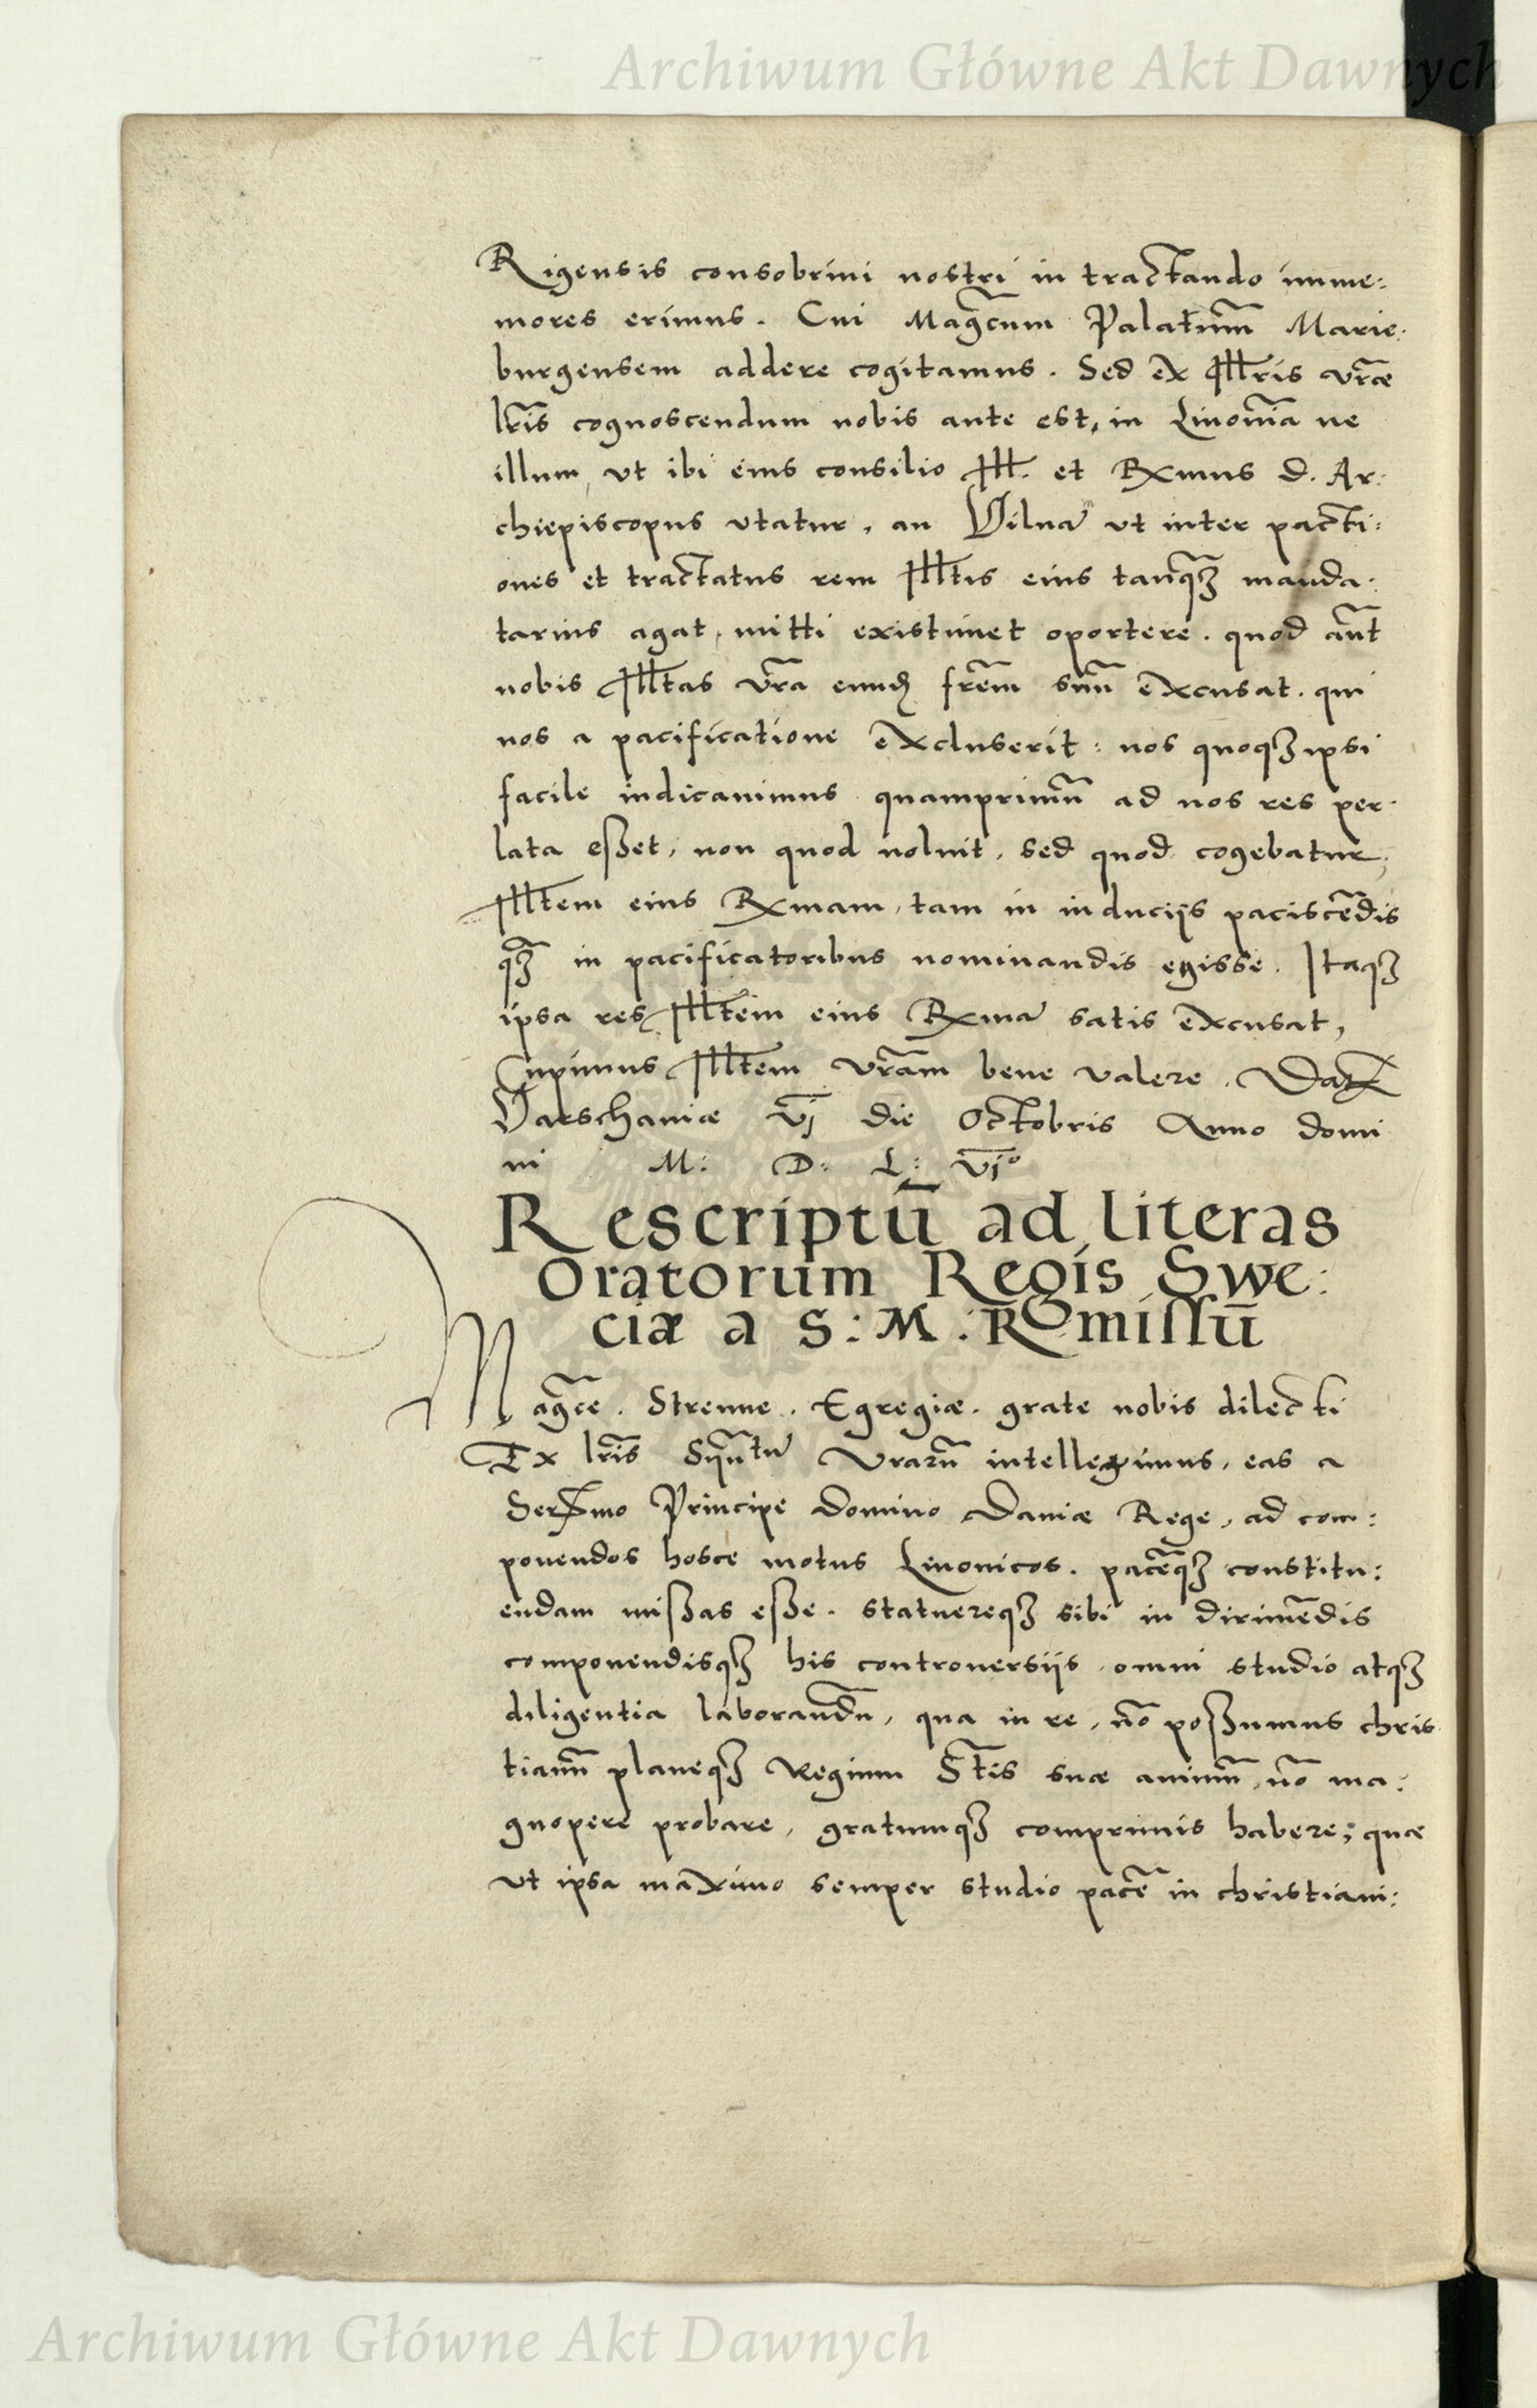 Archiwum Główne Akt Dawnych
Rigensis consobrini nostri in tractando imme:
mores erimus. Cui Mag̃cum Palatinũ Marie:
burgensem addere cogitamus. Sed ex Illr̃is vrãe
lr̃is cognoscendum nobis ante est, in Liuoniã ne
illum, vt ibi eius consilio Ill. et Rxmus d. Ar:
chiepiscopus vtatur, an Vilnã vt inter pacti:
ones et tractatus rem Illt̃is eius tanq̃ꝫ manda:
tarius agat, mitti existimet oportere. quod aũt
nobis Illt̃as vrã eund̃ frẽm suũ excusat. qui
nos a pacificatione excluserit: nos quoqꝫ ipsi
facile indicauimus quamprimũ ad nos res per:
lata eßet, non quod uoluit, sed quod cogebatur,
Illt̃em eius Rxmam, tam in induciis paciscẽdis
q̃ꝫ in pacificatoribus nominandis egisse. Itaqꝫ
ipsa res Illt̃em eius Rxmã satis excusat,
Cupimus Illt̃em vrãm bene valere. Dat̃
Varschauiæ vj̃ die Octobris Anno domi
ni M: D: L: vj̃º
Rescriptũ ad literas
Oratorum Regis Swe:
ciæ a S: M: Remissũ
Mag̃ce. Strenue. Egregiæ. grate nobis dilecti
Ex lr̃is Vrarũ intelleximus, eas a
Serxmo Principe Domino Daniæ Rege, ad com:
ponendos hosce motus Liuonicos. pacẽqꝫ constitu:
endam mißas eße. statuereqꝫ sibi in dirimẽdis
componendisqꝫ his controuersiis, omni studio atqꝫ
diligentia laborandũ, qua in re, nõ poßumus chris
tianũ planeqꝫ Regium St̃is suæ animũ, nõ ma:
gnopere probare, gratumqꝫ comprimis habere; quæ
vt ipsa maximo semper studio pacẽ in christiani:
Archiwum Główne Akt Dawnych